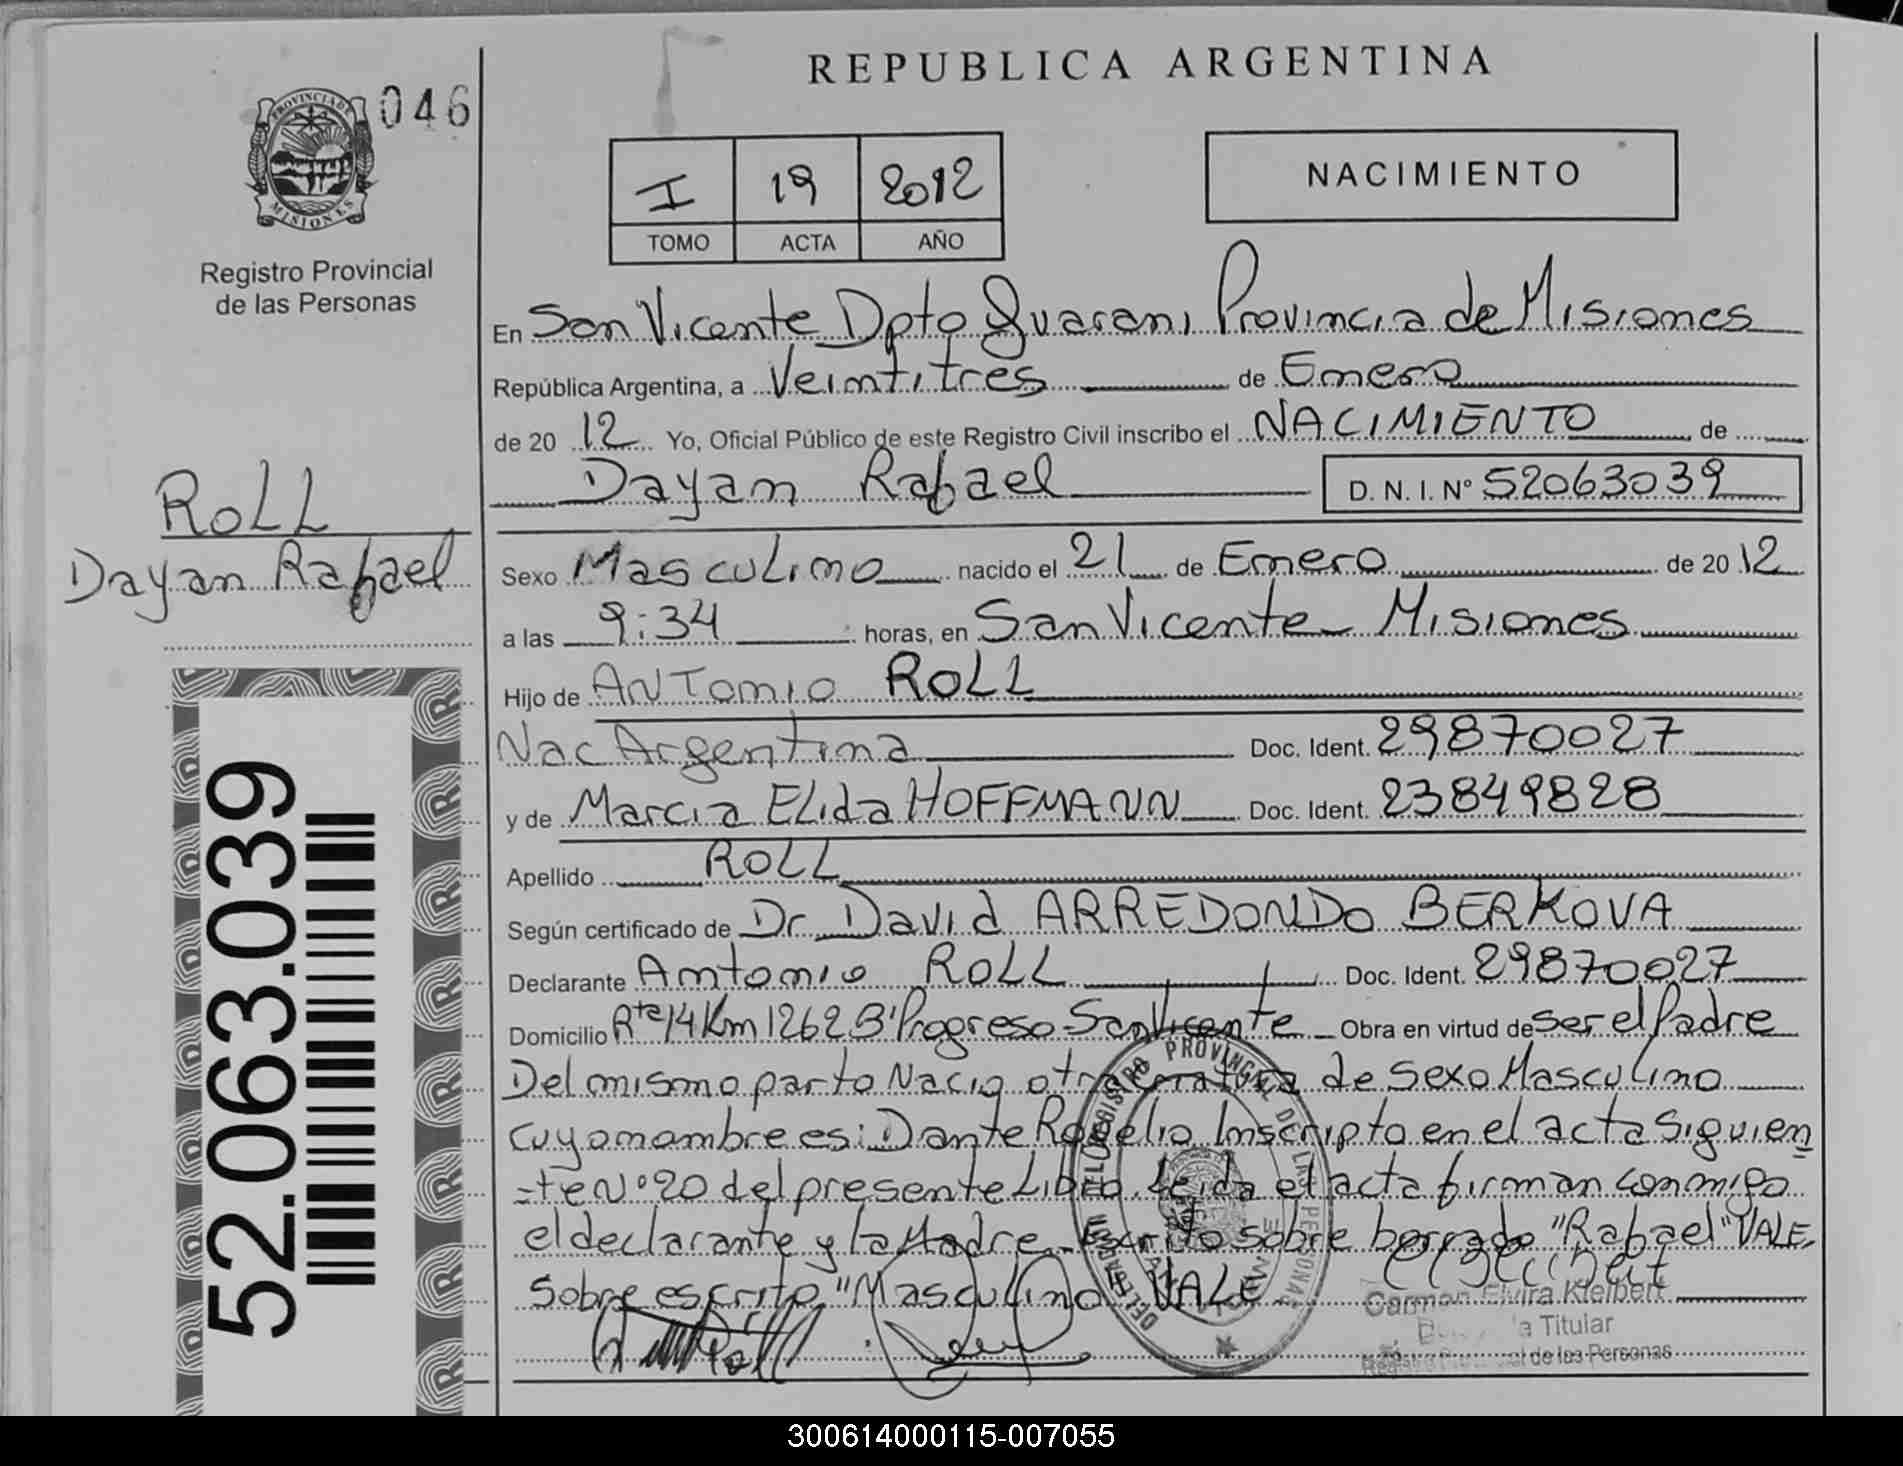 REPUBLICA ARGENTINA
PROVINCIA DE MISIONES
046
Registro Provincial
de las Personas
I 19 2012
TOMO ACTA AÑO
NACIMIENTO
En San Vicente Dpto Guarani Provincia de Misiones
República Argentina, a Veintitres de Enero
de 20 12 Yo, Oficial Público de este Registro Civil inscribo el NACIMIENTO de
Dayan Rafael D. N. I. N° 52063039
ROLL
Dayan Rafael
Sexo Masculino nacido el 21 de Enero de 20 12
a las 9:34 horas, en San Vicente - Misiones
Hijo de ANTonio ROLL
Nac Argentina Doc. Ident. 29870027
y de Marcia ELida HOFFMANN Doc. Ident. 23849828
Apellido ROLL
Según certificado de Dr David ARREDONDO BERKOVA
Declarante Antonio ROLL Doc. Ident. 29870027
Domicilio Rte 14 Km 1262 B° Progreso San Vicente - Obra en virtud de ser el Padre
Del mismo parto Nacio otra criatura de sexo Masculino
cuyo nombre es: Dante Rogelio Inscripto en el acta siguien
=te N° 20 del presente Libro. Leida el acta firman conmigo
el declarante y la Madre. Escrito sobre borrado "Rafael" VALE,
Sobre escrito "Masculino" VALE
Carmen Elvira Kleibert
Titular
de las Personas
REGISTRO PROVINCIAL DE LAS PERSONAS
52.063.039
300614000115-007055